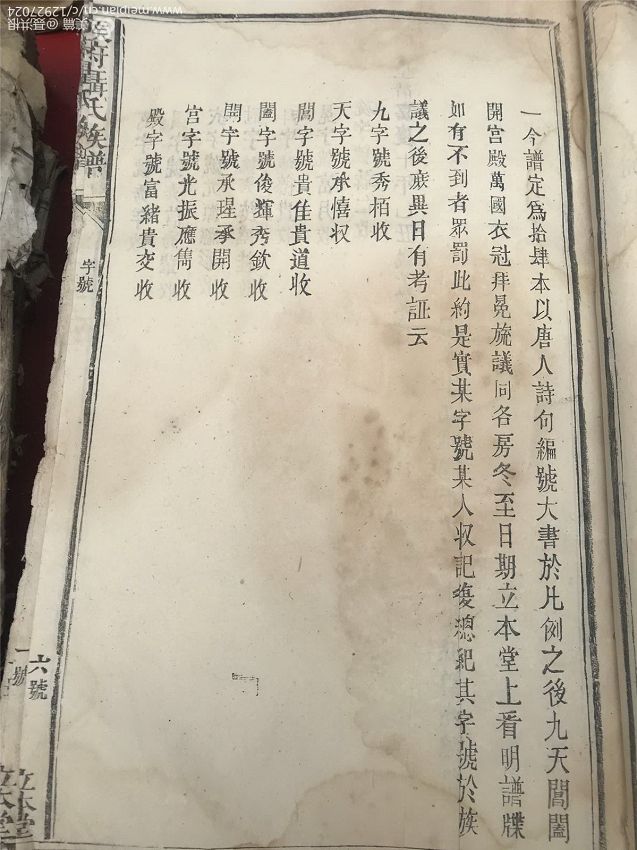 一今譜定爲拾肆本以唐人詩句編號大書於凡例之後九天閶闔
開宫殿萬國衣冠拜冕旒議同各房冬至日期立本堂上看明譜牒
如有不到者眾罰此約是實某字號某人収記復總紀其字號於族
議之後庶異日有考証云
九字號秀栢收
天字號承僖収
閶字號貴佳貴道收
闔字號俊輝秀欽收
開字號承瑆承開收
宫字號光振應雋收
殿字號富豬貴交收
聶氏族譜
字號
六號
立本堂
美篇 @聂洪根 www.meipian.cn/c/12927024